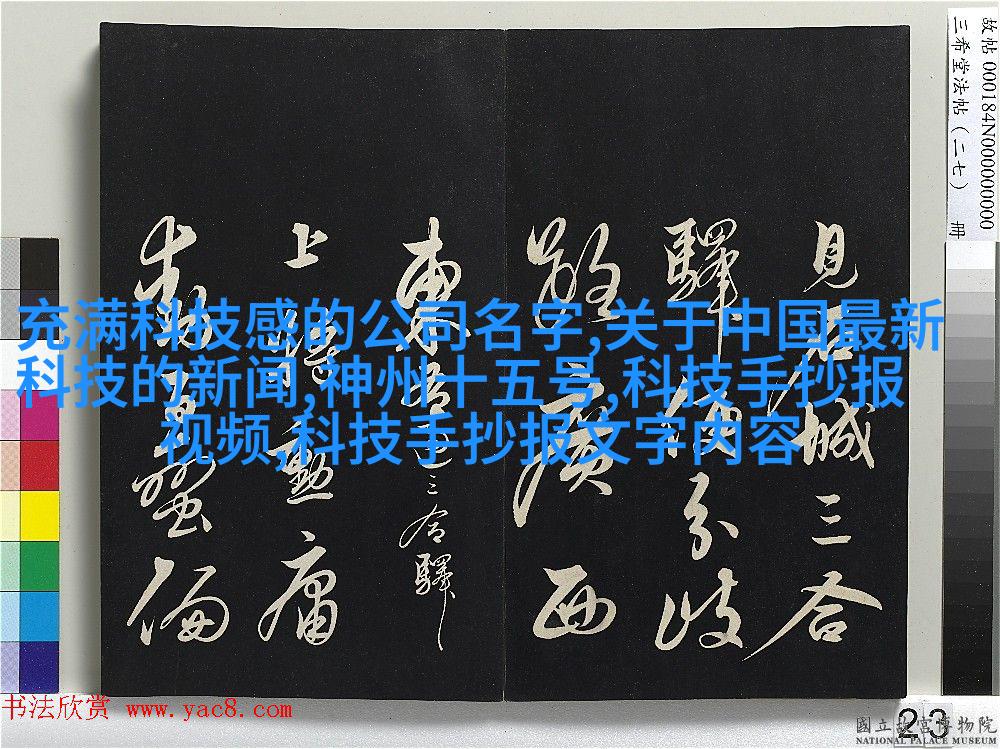 故帖 000184N000000000
三希堂法帖（二七） 冊
充满科技感的公司名字,关于中国最新
科技的新闻,神州十五号,科技手抄报
视频,科技手抄报文字内容
見石城三合
驛
分歧
路廣西
東
三合驛
上
勳庸
蠻
偏
书法欣赏 www.yac8.com
23
國立故宮博物院
NATIONAL PALACE MUSEUM